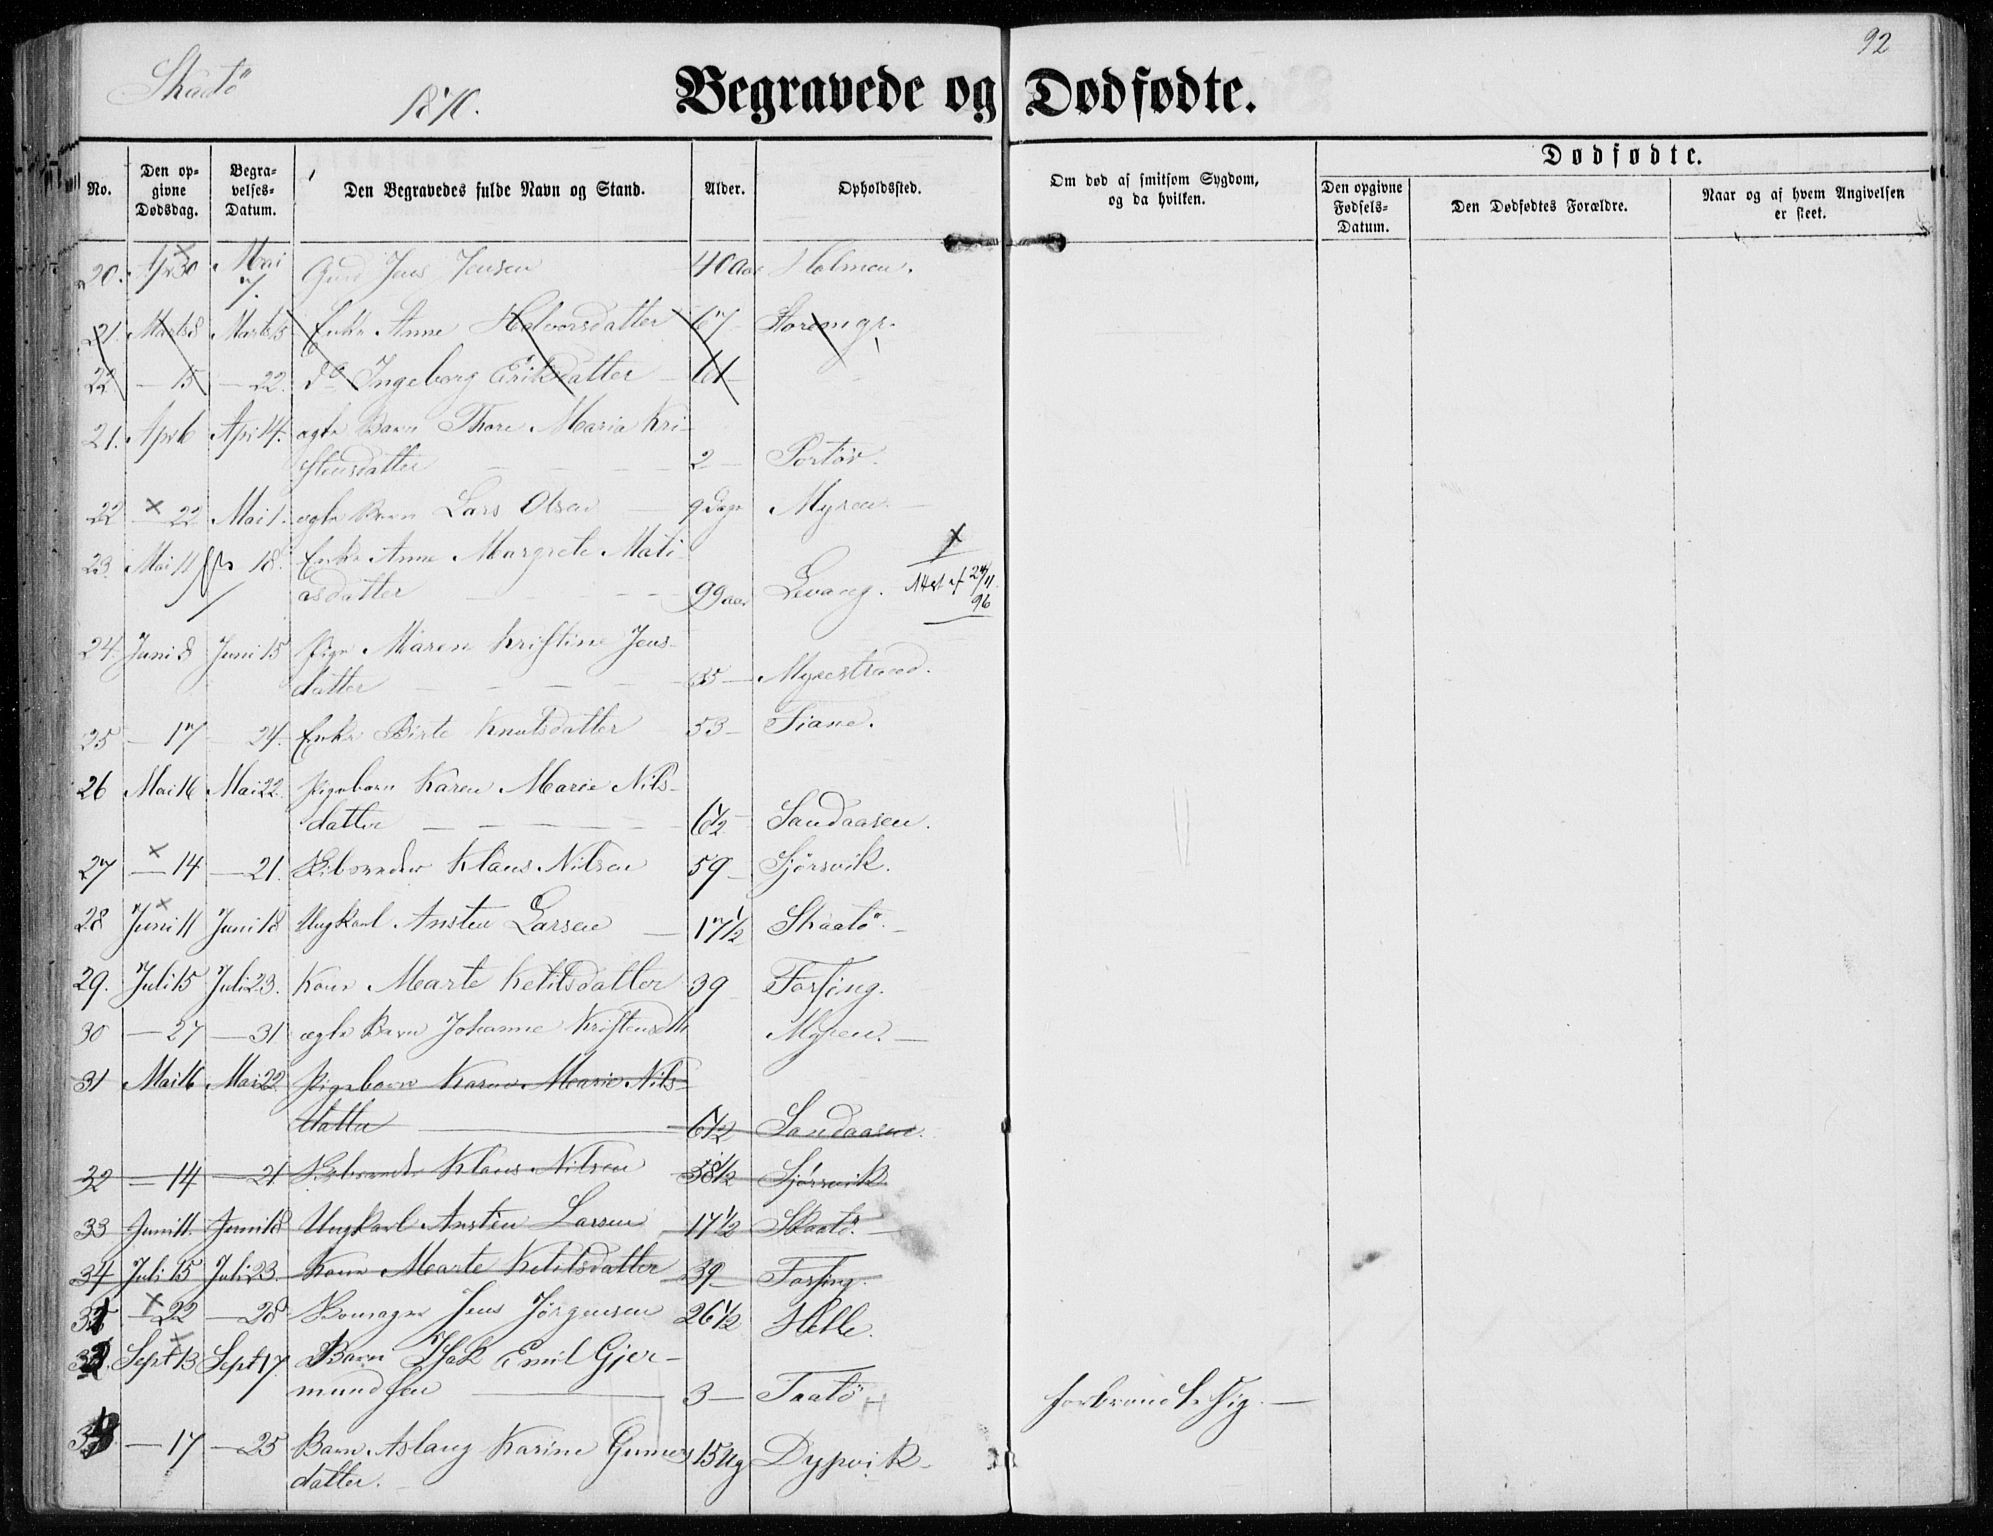 92
Skaatö
1870.
Begravede og Dødfødte.
No.
Den opgivne Dødsdag.
Begravelses-Datum.
Den Begravedes fulde Navn og Stand.
Alder.
Opholdssted.
Om død af smitsom Sygdom, og da hvilken.
Dødfødte.
Den opgivne Fødsels-Datum.
Den Dødfødtes Forældre.
Naar og af hvem Angivelsen er skeet.
20. Apr 30 Mai 7. Jens Jensen 40 Aar Holmen.
21. Marts 8 Marts 15 Enke Anne Halvorsdatter 67
22 — 15 — 22. do Ingeborg Eriksdatter — 61 —
21. Apr 6 Apr 14. ægte Barn Thore Maria Kri-
stensdatter — — — 2 — Portør.
22 — 22 Mai 1. ægte Barn Lars Olsen — 9 Dage Myren. —
23. Mai 11 18. Enke Anne Margrete Mati-
asdatter — — — 99 aar Levang. Attest af 24/11 96
24. Juni 8 Juni 15 Pige Maren Kristine Jens-
datter — — — — Myrestrand.
25 — 17 — 24. Enke Birte Knutsdatter 53 — Tiane.
26 Mai 16 Mai 22. Pigebarn Karen Marie Nils-
datter — — — — 6 1/2 Sandaasen.
27 — 14 — 21. Klaus Nilsen 59 — Sjørsvik.
28 Juni 11 Juni 18 Ungkarl Ansten Larsen — 17 1/2 Skaatö. —
29. Juli 15 Juli 23. Kone Marte Ketilsdatter 39 Forsing.
30 — 27 — 31 ægte Barn Johanne Kristensdtr Myren. —
31 Mai 16 Mai 22. Pigebarn Karen Marie Nils-
datter — 6 1/2 Sandaasen.
32 — 14 — 21 Klaus Nilsen 58 1/2 Sjørsvik.
33 Juni 11. Juni 18 Ungkarl Ansten Larsen 17 1/2 Skaatö. —
34 Juli 15 Juli 23. Kone Marte Ketilsdatter 39 — Forsing.
31 — 22 — 28 Jens Jørgensen 26 1/2 Helle.
32. Sept 13 Sept 17. Barn Isak Emil Gjer-
mundsen — 3 — Taatö forbrændt sig. —
33. — 17 — 25 Barn Aslaug Karine Gunners 15 Ug Dypvik —
datter. —